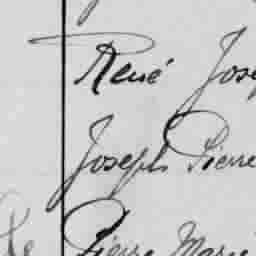 René Jos
Joseph Pierre
Le Pierre Marie